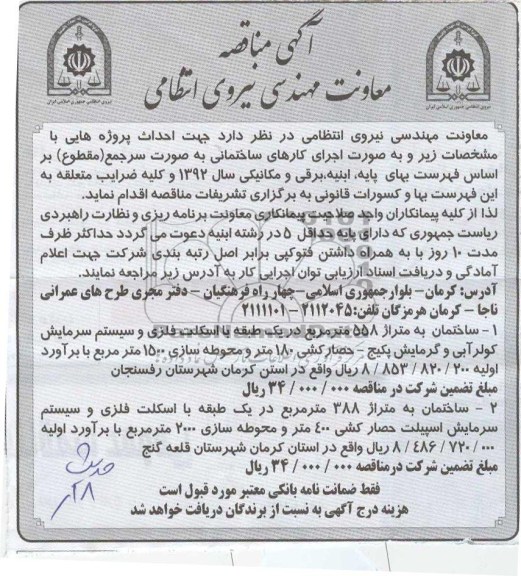 آگهی مناقصه
معاونت مهندسی نیروی انتظامی
نیروی انتظامی جمهوری اسلامی ایران
نیروی انتظامی جمهوری اسلامی ایران
معاونت مهندسی نیروی انتظامی در نظر دارد جهت احداث پروژه هایی با
مشخصات زیر و به صورت اجرای کارهای ساختمانی به صورت سرجمع(مقطوع) بر
اساس فهرست بهای پایه، ابنیه،برقی و مکانیکی سال ۱۳۹۲ و کلیه ضرایب متعلقه به
این فهرست بها و کسورات قانونی به برگزاری تشریفات مناقصه اقدام نماید.
لذا از کلیه پیمانکاران واجد صلاحیت پیمانکاری معاونت برنامه ریزی و نظارت راهبردی
ریاست جمهوری که دارای پایه حداقل ۵ در رشته ابنیه دعوت می گردد حداکثر ظرف
مدت ۱۰ روز با به همراه داشتن فتوکپی برابر اصل رتبه بندی شرکت جهت اعلام
آمادگی و دریافت اسناد ارزیابی توان اجرایی کار به آدرس زیر مراجعه نمایند.
آدرس: کرمان- بلوارجمهوری اسلامی-چهار راه فرهنگیان - دفتر مجری طرح های عمرانی
ناجا - کرمان هرمزگان تلفن:۲۱۱۲۰۴۵- ۲۱۱۱۱۰۱
۱- ساختمان به متراژ ۵۵۸ مترمربع در یک طبقه با اسکلت فلزی و سیستم سرمایش
کولرآبی و گرمایش پکیج - حصارکشی ۱۸۰ متر و محوطه سازی ۱۵۰۰ متر مربع با برآورد
اولیه ۲۰۰ /۸۲۰ /۸۵۳ /۸ ریال واقع در استن کرمان شهرستان رفسنجان
مبلغ تضمین شرکت در مناقصه ۰۰۰/ ۰۰۰/ ۳۴ ریال
۲ - ساختمان به متراژ ۳۸۸ مترمربع در یک طبقه با اسکلت فلزی و سیستم
سرمایش اسپیلت حصار کشی ۴۰۰ متر و محوطه سازی ۲۰۰۰ مترمربع با برآورد اولیه
۰۰۰/ ۷۲۰/ ۴۸۶/ ۸ ریال واقع در استان کرمان شهرستان قلعه گنج
مبلغ تضمین شرکت درمناقصه ۰۰۰/ ۰۰۰/ ۳۴ ریال
فقط ضمانت نامه بانکی معتبر مورد قبول است
هزینه درج آگهی به نسبت از برندگان دریافت خواهد شد